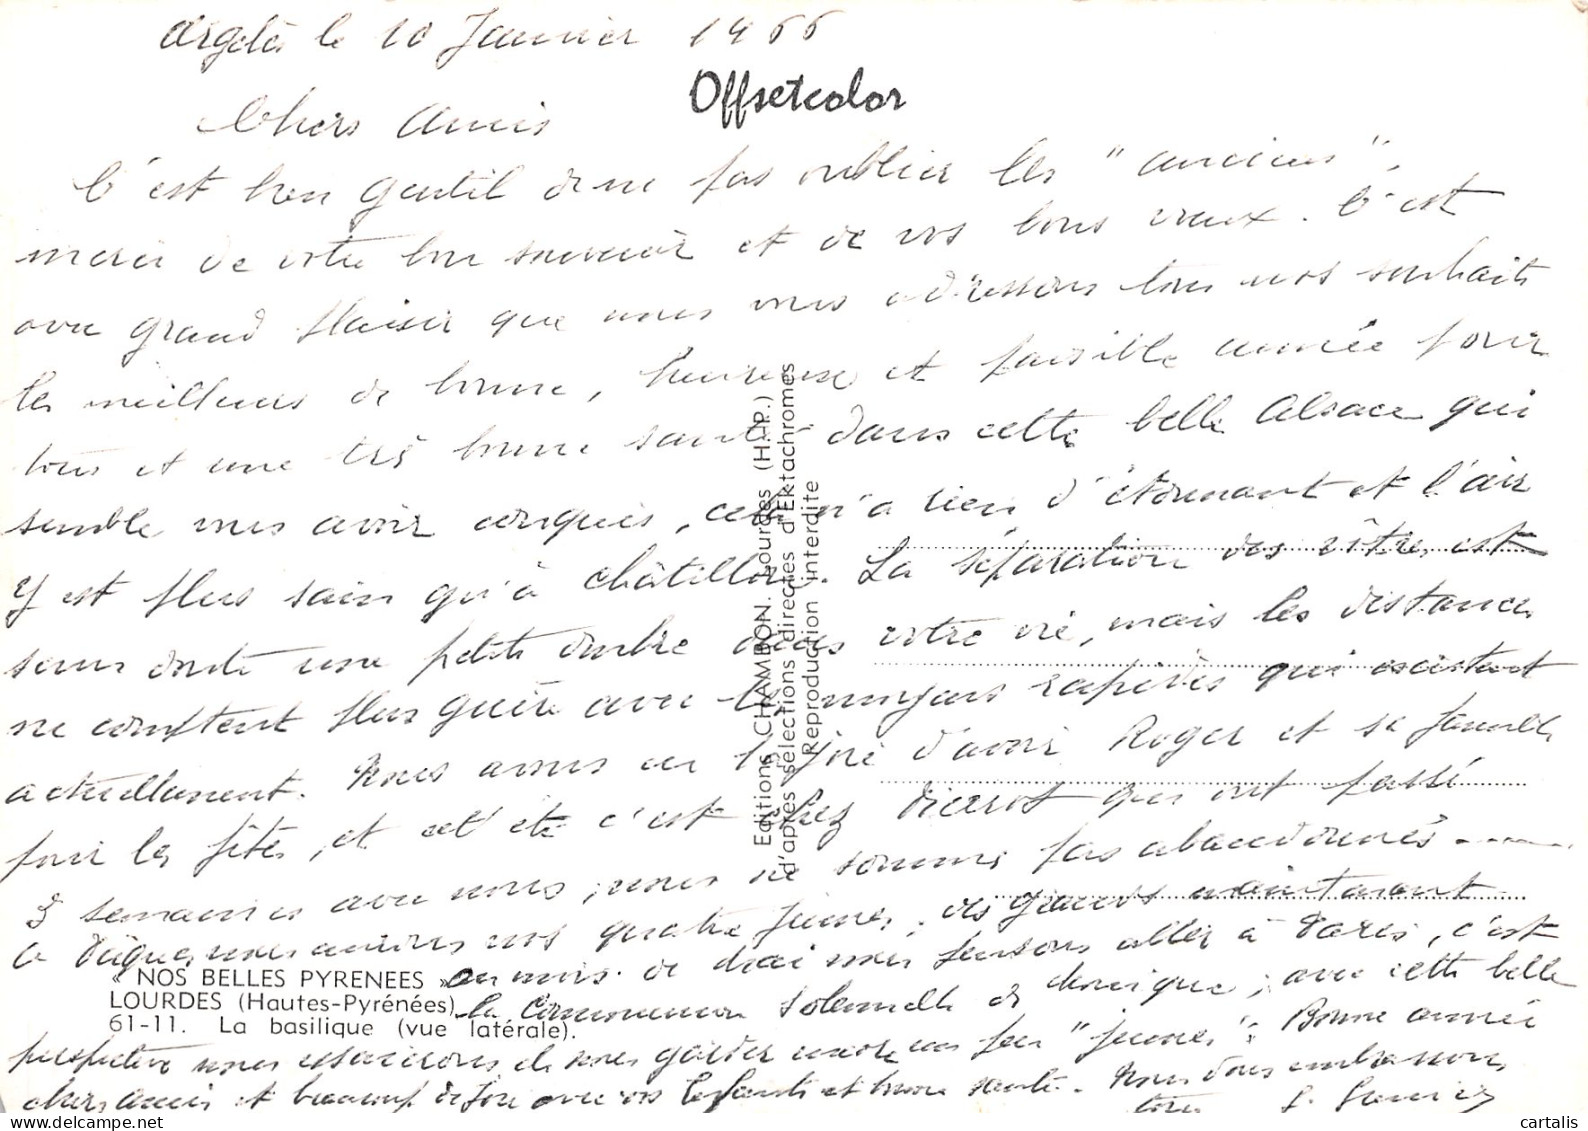 Argelès le 10 Janvier 1966
Offsetcolor
Chers Amis
C'est bien gentil de ne pas oublier les "anciens",
merci de votre bon souvenir et de vos bons vœux. C'est
avec grand plaisir que nous vous adressons tous nos souhaits
les meilleurs de bonne, heureuse et paisible année pour
tous et une très bonne santé dans cette belle Alsace qui
semble vous avoir conquis, cela n'a rien d'étonnant et l'air
y est plus sain qu'à Châtillon. La séparation des vôtres est
sans doute une petite ombre dans votre vie, mais les distances
ne comptent plus guère avec les moyens rapides qui existent
actuellement. Nous avons eu la joie d'avoir Roger et sa famille
pour les fêtes, et cet été c'est chez qui ont passé
3 semaines avec nous, nous ne sommes pas abandonnés
à Pâques nous aurons nos quatre jeunes, des grands maintenant
au mois de mai nous pensons aller à Paris, c'est
la communion solennelle de Monique, avec cette belle
perspective nous essaierons de nous garder encore un peu "jeunes". Bonne année
chers amis et beaucoup de joie avec vos enfants et bonne santé. Nous vous embrassons
tous
Editions CHAMBON. Lourdes (H.-P.)
d'après sélections directes d'Ektachromes
Reproduction interdite
« NOS BELLES PYRENEES »
LOURDES (Hautes-Pyrénées)
61-11. La basilique (vue latérale).
cartalis
delcampe.net